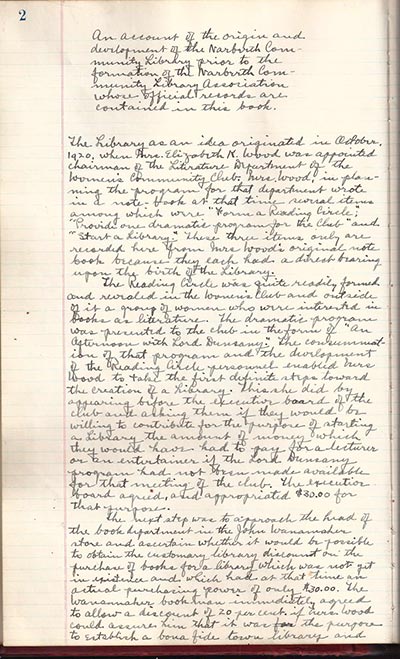 2
An account of the origin and
development of the Narberth Com-
munity Library prior to the
formation of the Narberth Com-
munity Library Association
whose official records are
contained in this book.
The Library as an idea originated in October,
1920, when Mrs. Elizabeth K. Wood was appointed
chairman of the Literature Department of the
Women's Community Club. Mrs. Wood, in plan-
ning the program for that department wrote
in a note-book at that time several items
among which were "Form a Reading Circle;"
"Provide one dramatic program for the Club" and
"Start a Library." These three items only are
recorded here from Mrs Wood's original note
book because they each had a direct bearing
upon the birth of the Library.
The Reading Circle was quite readily formed
and revealed in the Women's Club and outside
of it a group of women who were interested in
books as literature. The dramatic program
was presented to the club in the form of "An
Afternoon with Lord Dunsany." The consummat-
ion of that program and the development
of the Reading Circle personnel enabled Mrs
Wood to take the first definite steps toward
the creation of a Library. This she did by
appearing before the executive board of the
club and asking them if they would be
willing to contribute for the purpose of starting
a Library the amount of money which
they would have had to pay for a lecturer
or an entertainer if the Lord Dunsany
program had not been made available
for that meeting of the club. The executive
board agreed, and appropriated $30.00 for
that purpose.
The next step was to approach the head of
the book department in the John Wanamaker
store and ascertain whether it would be possible
to obtain the customary library discount on the
purchase of books for a library which was not yet
in existence and which had at that time an
actual purchasing power of only $30.00. The
Wanamaker book man immediately agreed
to allow a discount of 20 per cent. if Mrs Wood
could assure him that it was for the purpose
to establish a bona fide town library and